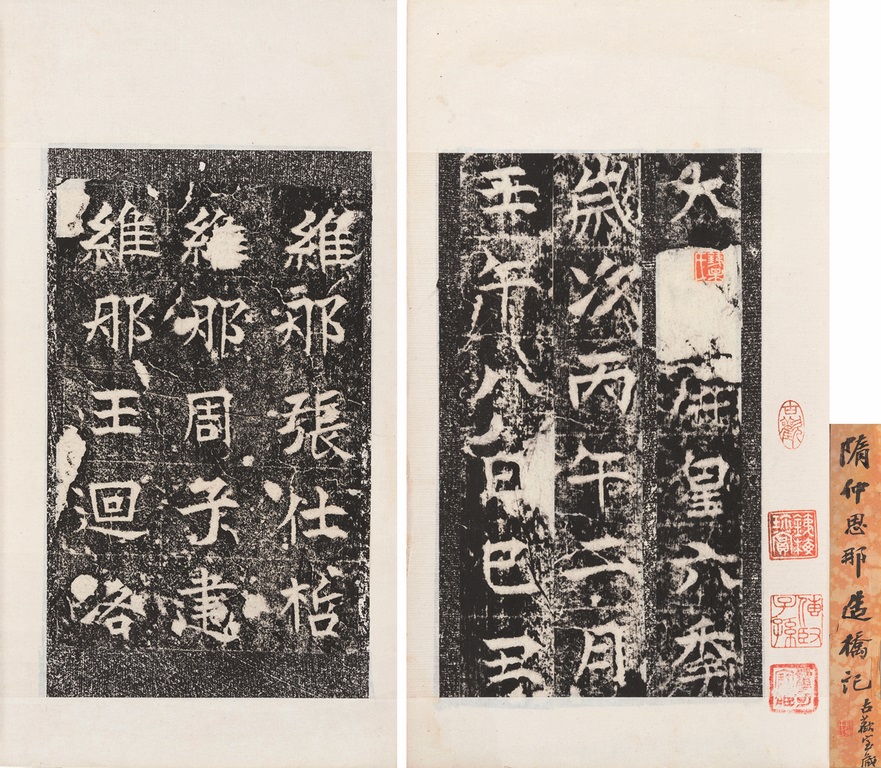 隋仲思那造橋記
古歡室藏
大開皇六年
歲次丙午二月
壬午八日己丑
維那張仕哲
維那周子建
維那王迴洛